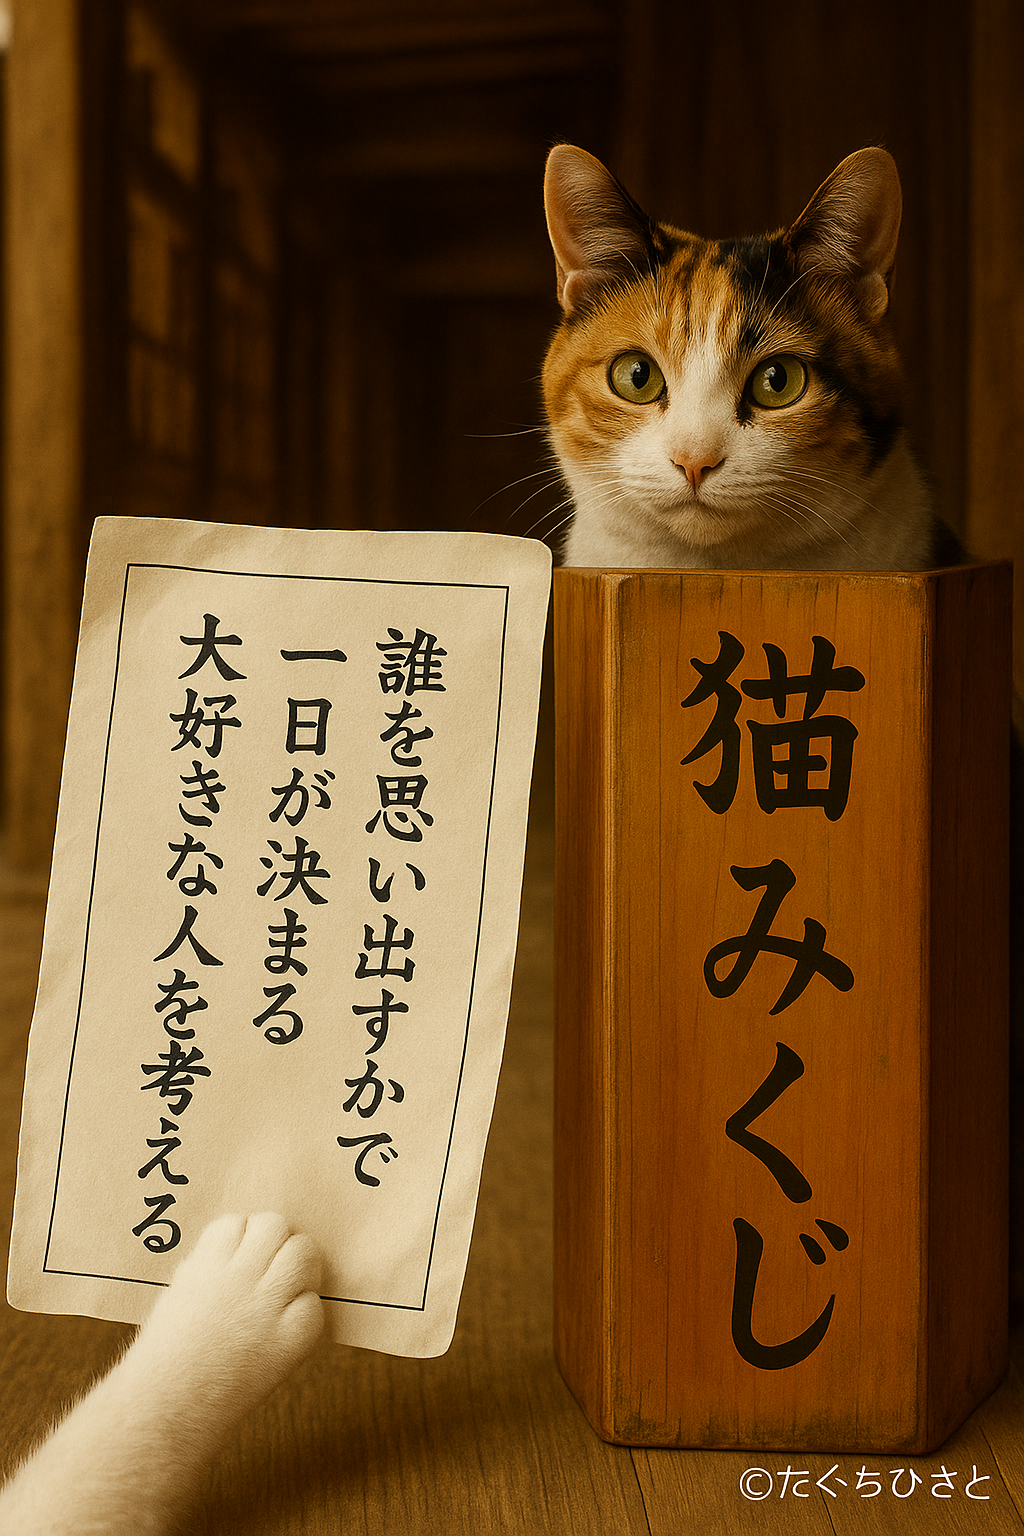 誰を思い出すかで
一日が決まる
大好きな人を考える
猫みくじ
©たぐちひさと